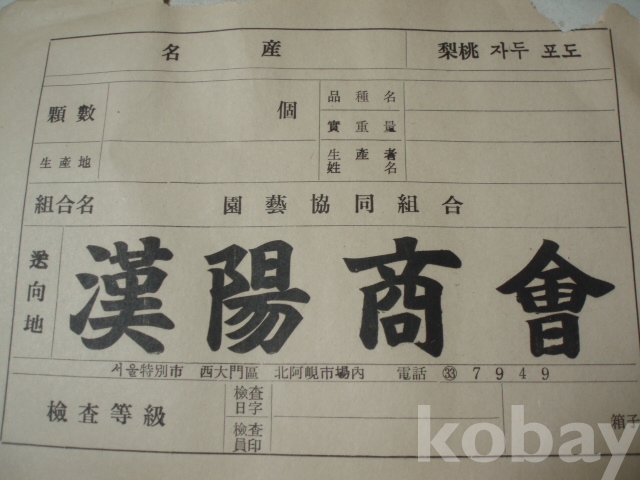 名產 梨桃 자두 포도
顆數 個 品種名
實重量
生產地 生產者姓名
組合名 園藝協同組合
送向地 漢陽商會
서울特別市 西大門區 北阿峴市場內 電話 ㉝ 7949
檢査等級 檢査日字
檢査員印
箱子
kobay